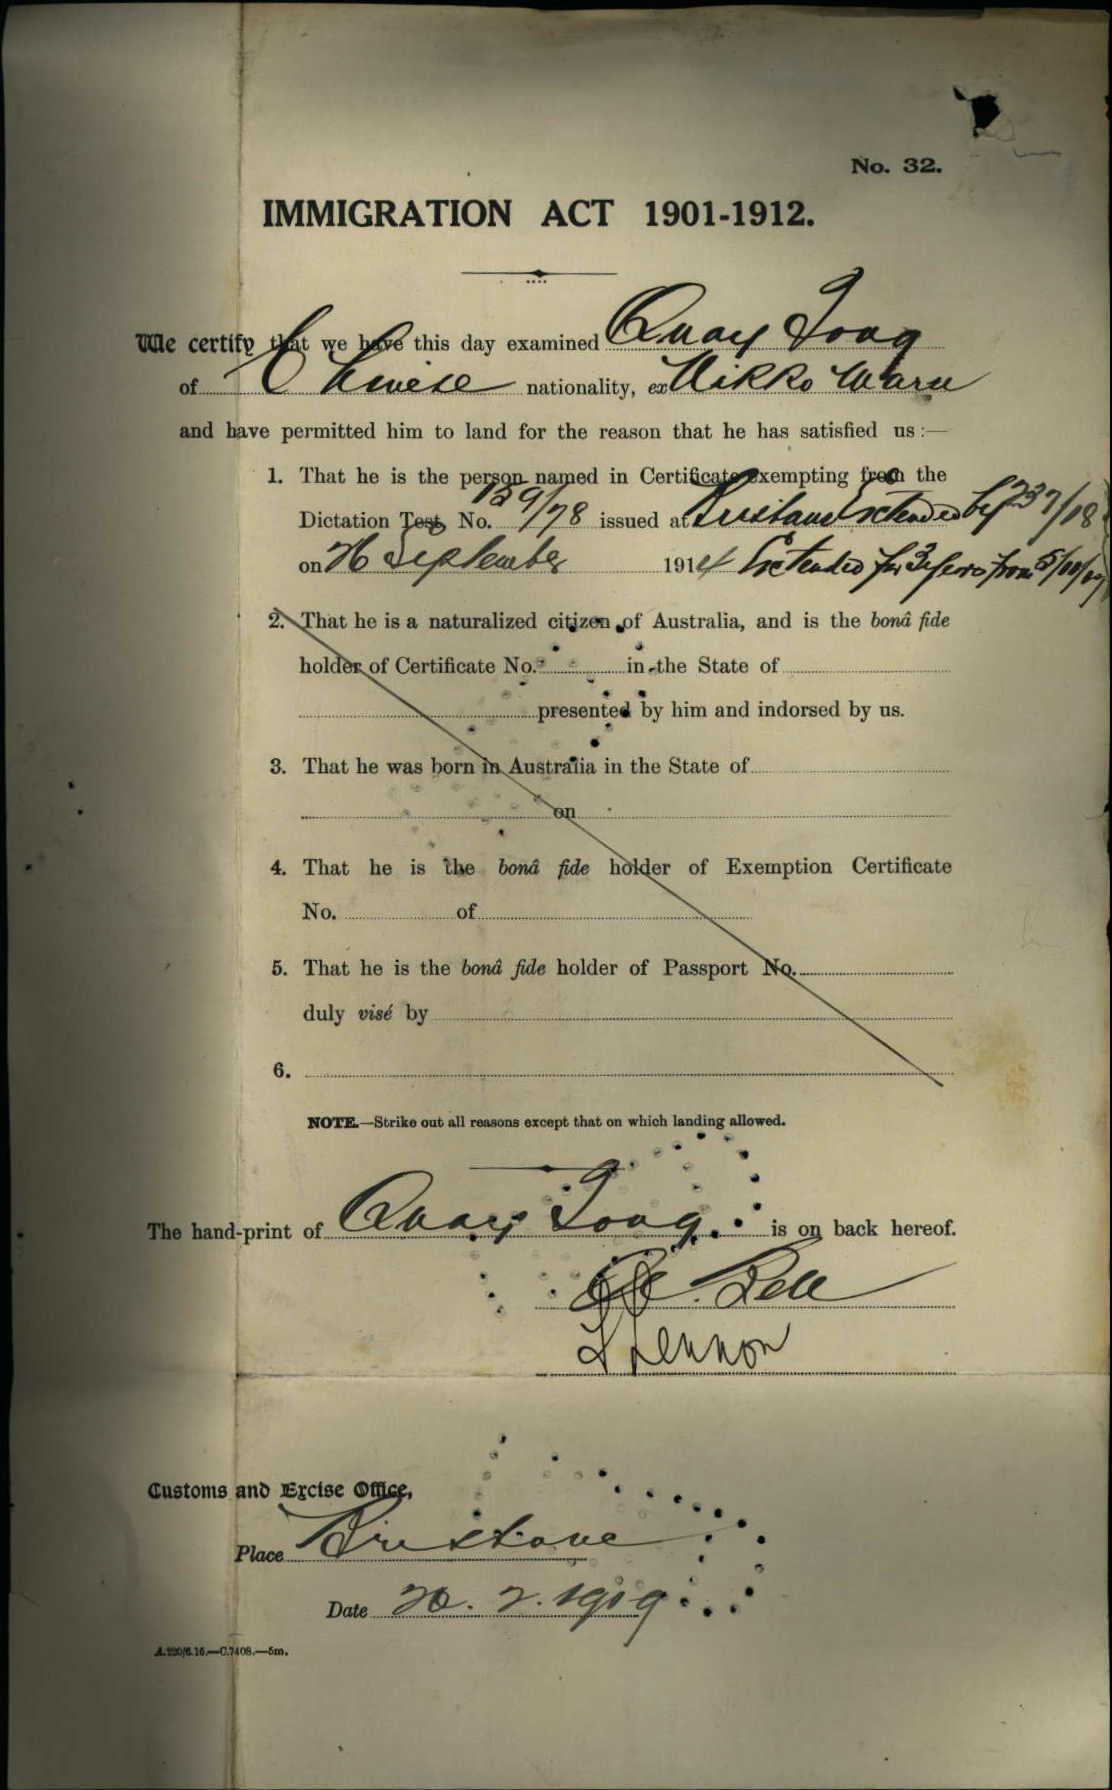 No. 32.
IMMIGRATION ACT 1901-1912.
We certify that we have this day examined Quay Tong
of Chinese nationality, ex Nikko Maru
and have permitted him to land for the reason that he has satisfied us :—
1. That he is the person named in Certificate exempting from the
Dictation Test, No. 139/78 issued at Brisbane Extended by 237/18
on 26 September 1914 Extended for 3 years from
2. That he is a naturalized citizen of Australia, and is the bonâ fide
holder of Certificate No. in the State of
presented by him and indorsed by us.
3. That he was born in Australia in the State of
on
4. That he is the bonâ fide holder of Exemption Certificate
No. of
5. That he is the bonâ fide holder of Passport No.
duly visé by
6.
NOTE.—Strike out all reasons except that on which landing allowed.
The hand-print of Quay Tong is on back hereof.
Bell
Lennon
Customs and Excise Office,
Place Brisbane
Date 26. 2. 1919
A.220/6.16.—C.7408.—5m.